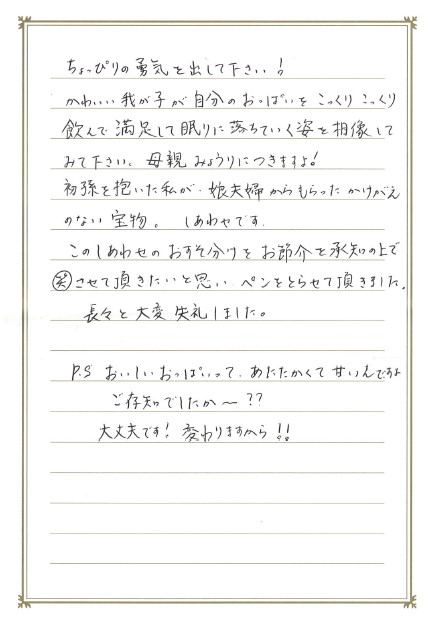 ちょっぴりの勇気を出して下さい!
かわいい我が子が自分のおっぱいをこっくりこっくり
飲んで満足して眠りに落ちていく姿を想像して
みて下さい。母親みょうりにつきますよ!
初孫を抱いた私が、娘夫婦からもらったかけがえ
のない宝物。しあわせです。
このしあわせのおすそ分けをお節介を承知の上で
㊋させて頂きたいと思い、ペンをとらせて頂きました。
長々と大変失礼しました。
P.S おいしいおっぱいって、あたたかくて甘いんですよ
ご存知でしたか〜??
大丈夫です!変わりますから!!